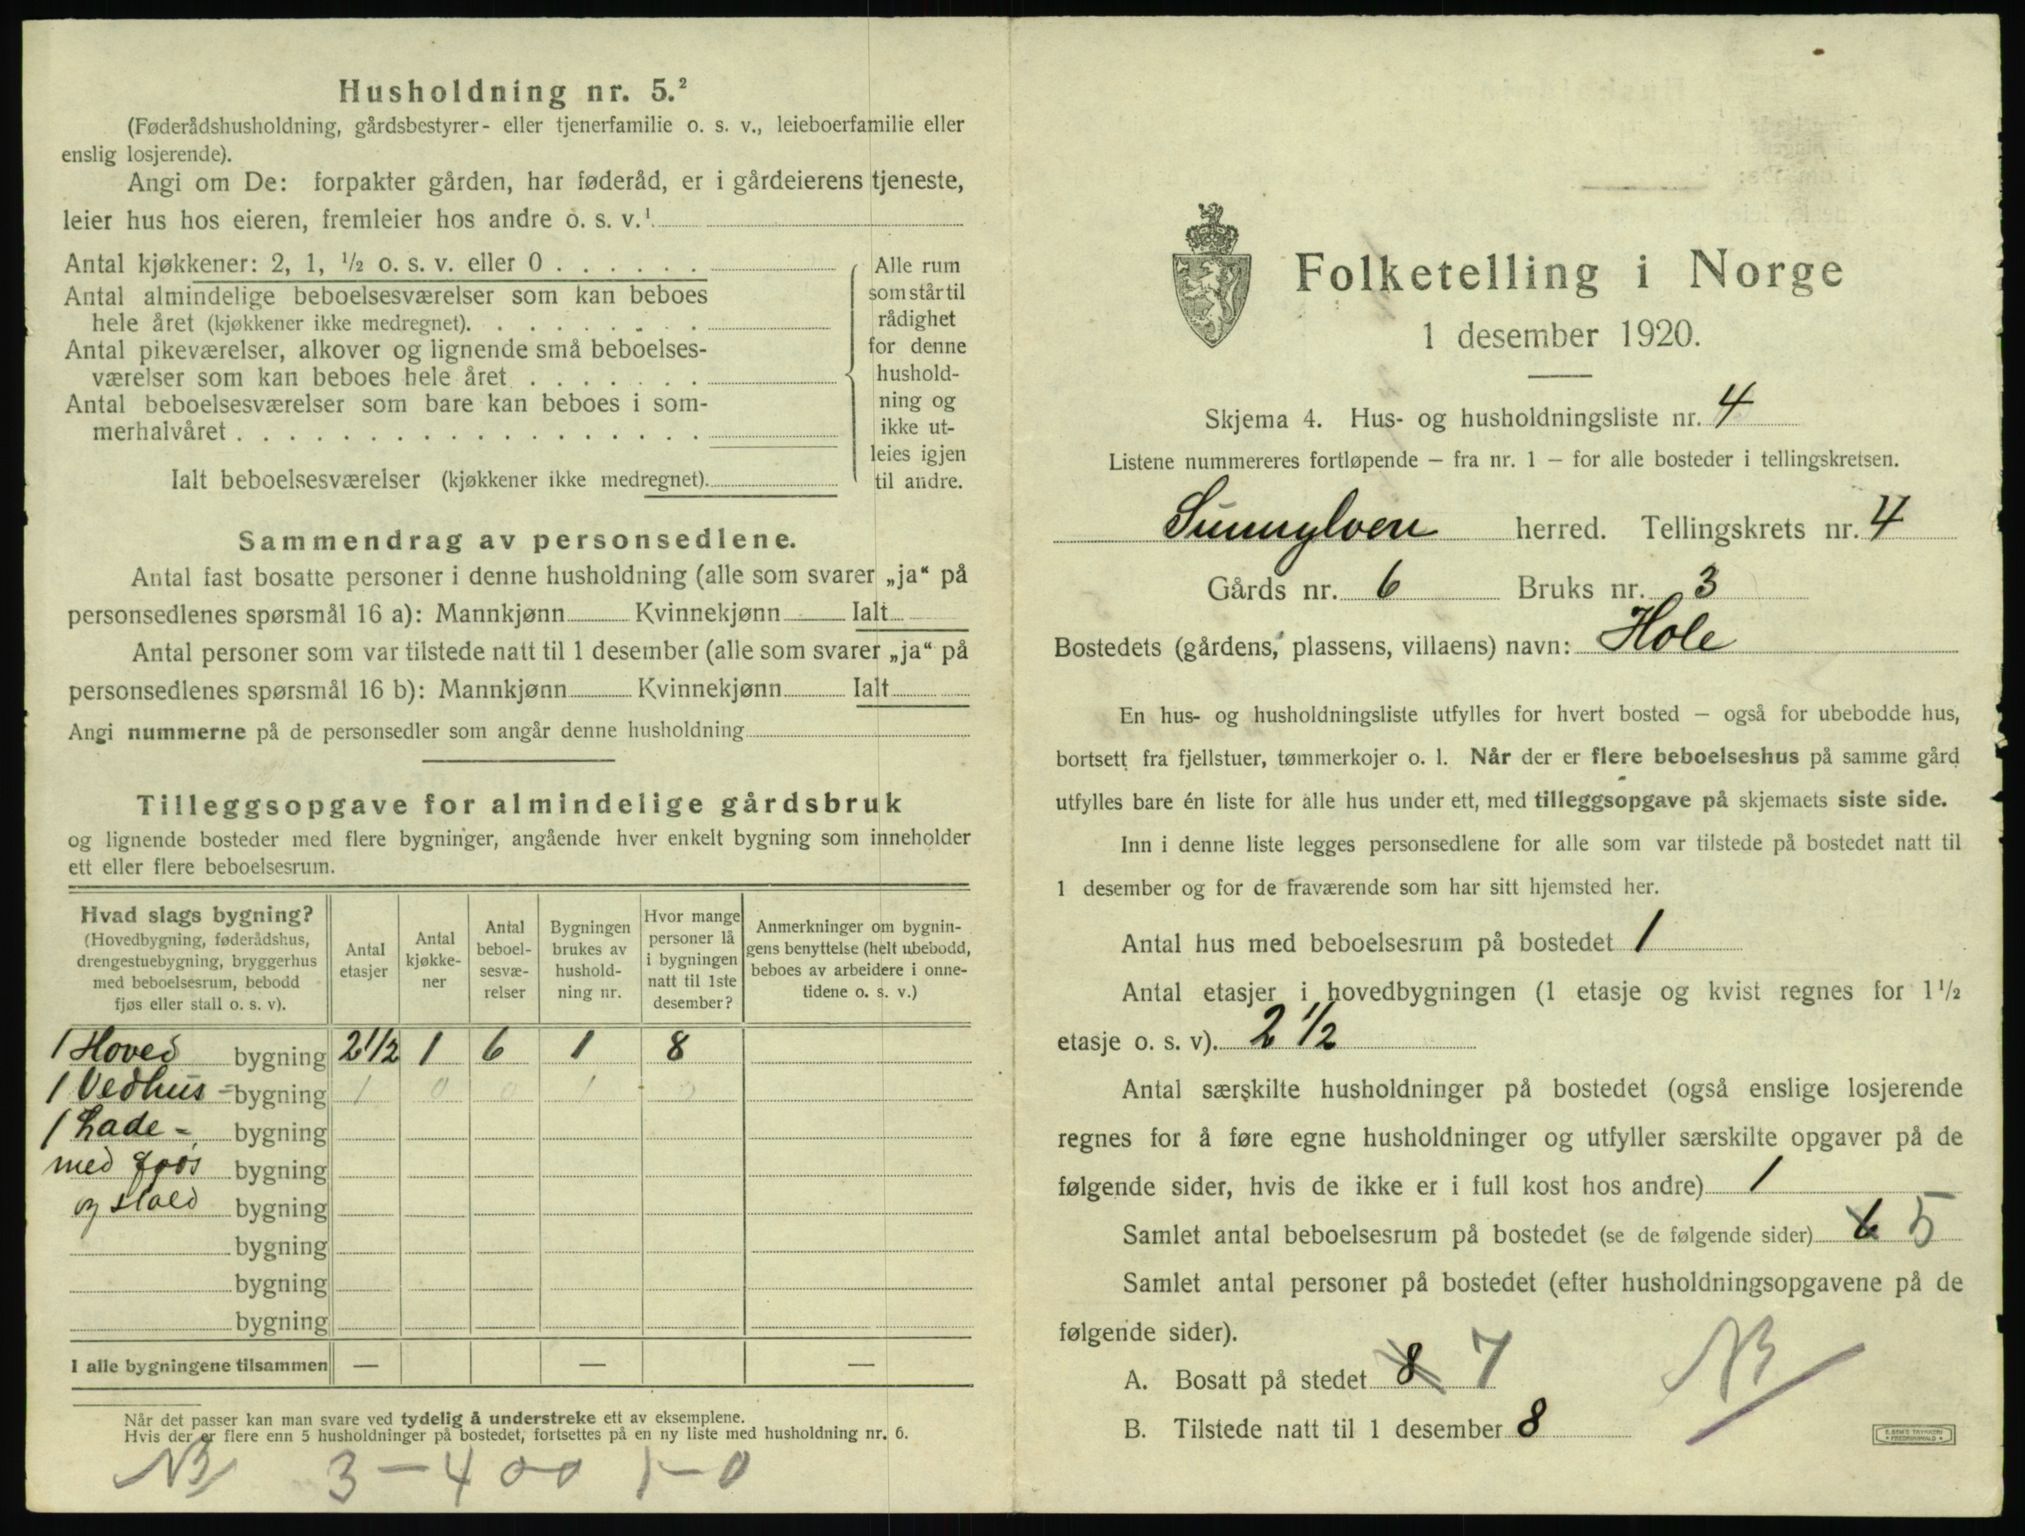 Husholdning nr. 5.²
(Føderådshusholdning, gårdsbestyrer- eller tjenerfamilie o. s. v., leieboerfamilie eller
enslig losjerende).
Angi om De: forpakter gården, har føderåd, er i gårdeierens tjeneste,
leier hus hos eieren, fremleier hos andre o. s. v.¹
Antal kjøkkener: 2, 1, ½ o. s. v. eller 0 . . . . . .
Antal almindelige beboelsesværelser som kan beboes
hele året (kjøkkener ikke medregnet). . . . . . . . .
Antal pikeværelser, alkover og lignende små beboelses-
værelser som kan beboes hele året . . . . . . .
Antal beboelsesværelser som bare kan beboes i som-
merhalvåret . . . . . . . . . . . . . . . . . .
Ialt beboelsesværelser (kjøkkener ikke medregnet).
Alle rum
som står til
rådighet
for denne
hushold-
ning og
ikke ut-
leies igjen
til andre.
Sammendrag av personsedlene.
Antal fast bosatte personer i denne husholdning (alle som svarer „ja“ på
personsedlenes spørsmål 16 a): Mannkjønn Kvinnekjønn Ialt
Antal personer som var tilstede natt til 1 desember (alle som svarer „ja“ på
personsedlenes spørsmål 16 b): Mannkjønn Kvinnekjønn Ialt
Angi nummerne på de personsedler som angår denne husholdning
Tilleggsopgave for almindelige gårdsbruk
og lignende bosteder med flere bygninger, angående hver enkelt bygning som inneholder
ett eller flere beboelsesrum.
Hvad slags bygning?
(Hovedbygning, føderådshus,
drengestuebygning, bryggerhus
med beboelsesrum, bebodd
fjøs eller stall o. s. v).
Antal
etasjer
Antal
kjøkke-
ner
Antal
beboel-
sesvæ-
relser
Bygningen
brukes av
hushold-
ning nr.
Hvor mange
personer lå
i bygningen
natt til 1ste
desember?
Anmerkninger om bygnin-
gens benyttelse (helt ubebodd,
beboes av arbeidere i onne-
tidene o. s. v.)
1 Hoved bygning 2 1/2 1 6 1 8
1 Vedhus - bygning 1 0 0 1 0
1 Lade - bygning
med fjøs bygning
og stald bygning
bygning
bygning
bygning
I alle bygningene tilsammen — — —
Når det passer kan man svare ved tydelig å understreke ett av eksemplene.
Hvis der er flere enn 5 husholdninger på bostedet, fortsettes på en ny liste med husholdning nr. 6.
NB 3 - 4 0 0 1 - 0
Folketelling i Norge
1 desember 1920.
Skjema 4. Hus- og husholdningsliste nr. 4
Listene nummereres fortløpende – fra nr. 1 – for alle bosteder i tellingskretsen.
Sunnylven herred. Tellingskrets nr. 4
Gårds nr. 6 Bruks nr. 3
Bostedets (gårdens, plassens, villaens) navn: Hole
En hus- og husholdningsliste utfylles for hvert bosted – også for ubebodde hus,
bortsett fra fjellstuer, tømmerkojer o. l. Når der er flere beboelseshus på samme gård
utfylles bare én liste for alle hus under ett, med tilleggsopgave på skjemaets siste side.
Inn i denne liste legges personsedlene for alle som var tilstede på bostedet natt til
1 desember og for de fraværende som har sitt hjemsted her.
Antal hus med beboelsesrum på bostedet 1
Antal etasjer i hovedbygningen (1 etasje og kvist regnes for 1½
etasje o. s. v). 2 1/2
Antal særskilte husholdninger på bostedet (også enslige losjerende
regnes for å føre egne husholdninger og utfyller særskilte opgaver på de
følgende sider, hvis de ikke er i full kost hos andre) 1
Samlet antal beboelsesrum på bostedet (se de følgende sider) 6 5
Samlet antal personer på bostedet (efter husholdningsopgavene på de
følgende sider).
A. Bosatt på stedet 8 7
B. Tilstede natt til 1 desember 8
NB